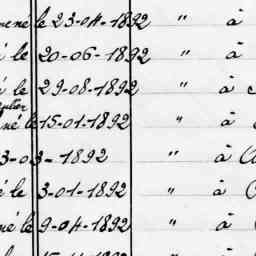 né le 23-04-1892 " à
é le 20-06-1892 " à
é le 29-08-1892 " à
né le 15-01-1892 " à
3-03-1892 " à
é le 3-01-1892 " à
né le 9-04-1892 " à